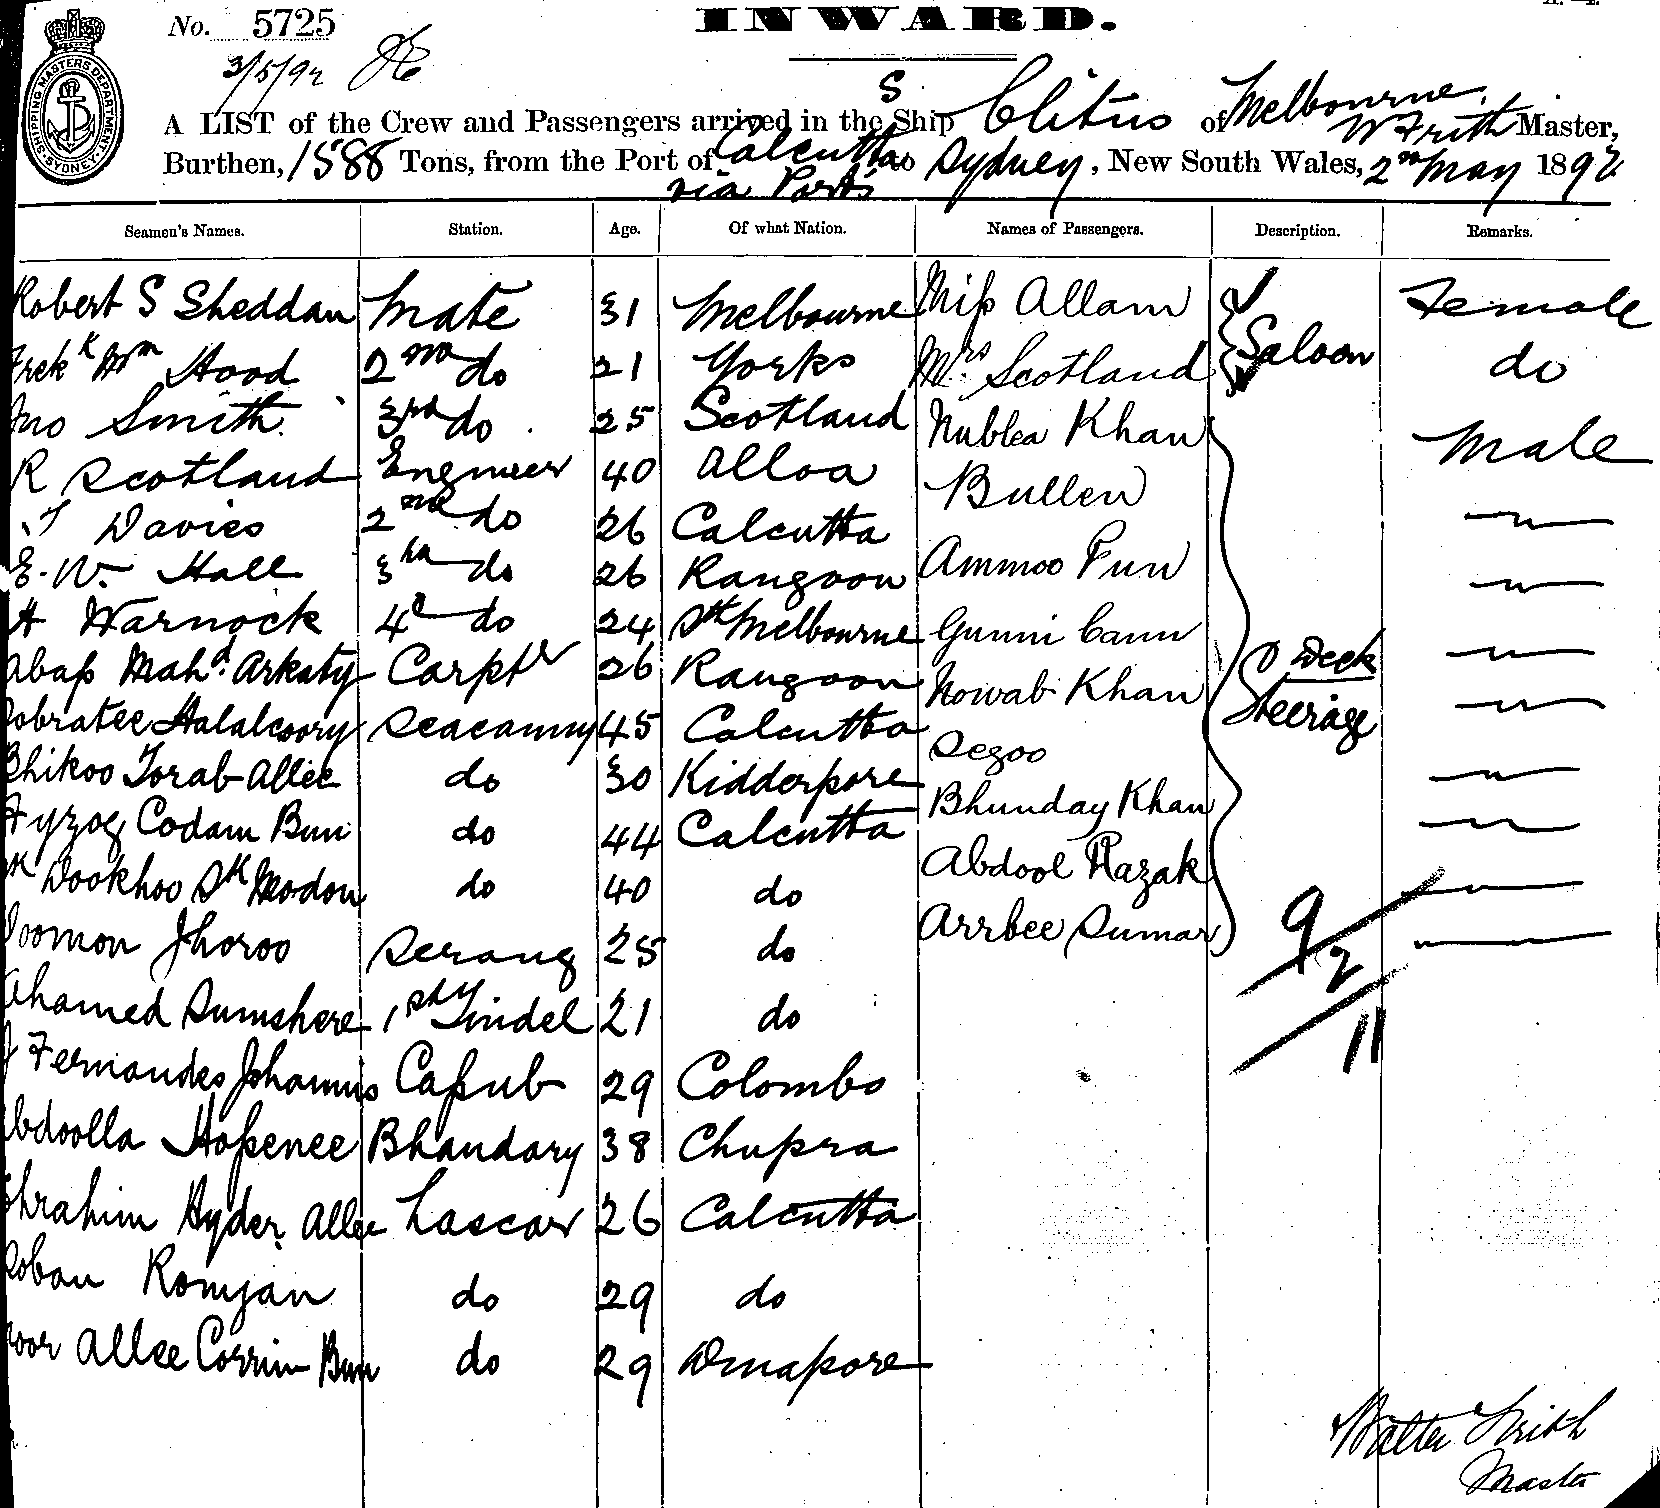 No. 5725
INWARD.
3/5/92
SHIPPING MASTERS DEPARTMENT SYDNEY
S
A LIST of the Crew and Passengers arrived in the Ship Clitus of Melbourne, W Frith Master,
Burthen, 1588 Tons, from the Port of Calcutta to Sydney, New South Wales, 2nd May 1892
via Ports
Seamen's Names. Station. Age. Of what Nation. Names of Passengers. Description. Remarks.
Robert S Sheddan Mate 31 Melbourne Miss Allam Saloon Female
Fredk Wm Hood 2nd do 21 Yorks Mrs Scotland do
Jno Smith 3rd do 25 Scotland Nublea Khan Male
R Scotland Engineer 40 Alloa Bullen
T Davies 2nd do 26 Calcutta
E. W. Hall 3rd do 26 Rangoon Ammoo Pun
A Warnock 4th do 24 Sth Melbourne Gunni Cann
Abass Mahd. Arkaty Carptr 26 Rangoon Nowab Khan Deck Steerage
Sobratee Halalcoory Seacunny 45 Calcutta Segoo
Bhikoo Torab Allee do 30 Kidderpore Bhunday Khan
Fyzog Codam Bun do 44 Calcutta
Sk Dookhoo Sk Modon do 40 do Abdool Razak 9
Joomon Jhoroo Serang 25 do Arrbee Sumar 2
Ahamed Sumshere 1st Tindel 21 do 11
J Fernandes Johannus Cassub 29 Colombo
Abdoolla Hossenee Bhandary 38 Chupra
Ebrahim Hyder Allee Lascar 26 Calcutta
Soban Romjan do 29 do
Noor Allee Corrim Bun do 29 Dinapore
Walter Frith
Master